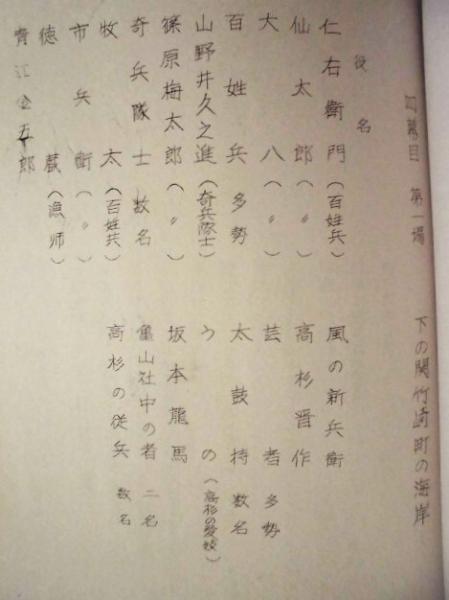 四幕目 第一場 下の関竹崎町の海岸
役名
仁右衛門(百姓兵)
仙太郎(〃)
大八(〃)
百姓兵多勢
山野井久之進(奇兵隊士)
篠原梅太郎(〃)
奇兵隊士数名
牧太(百姓兵)
市兵衛(〃)
徳蔵(漁师)
金五郎
風の新兵衛
高杉晋作
芸者多勢
太鼓持数名
うの(高杉の愛妓)
坂本龍馬
亀山社中の者 二名
高杉の従兵 数名